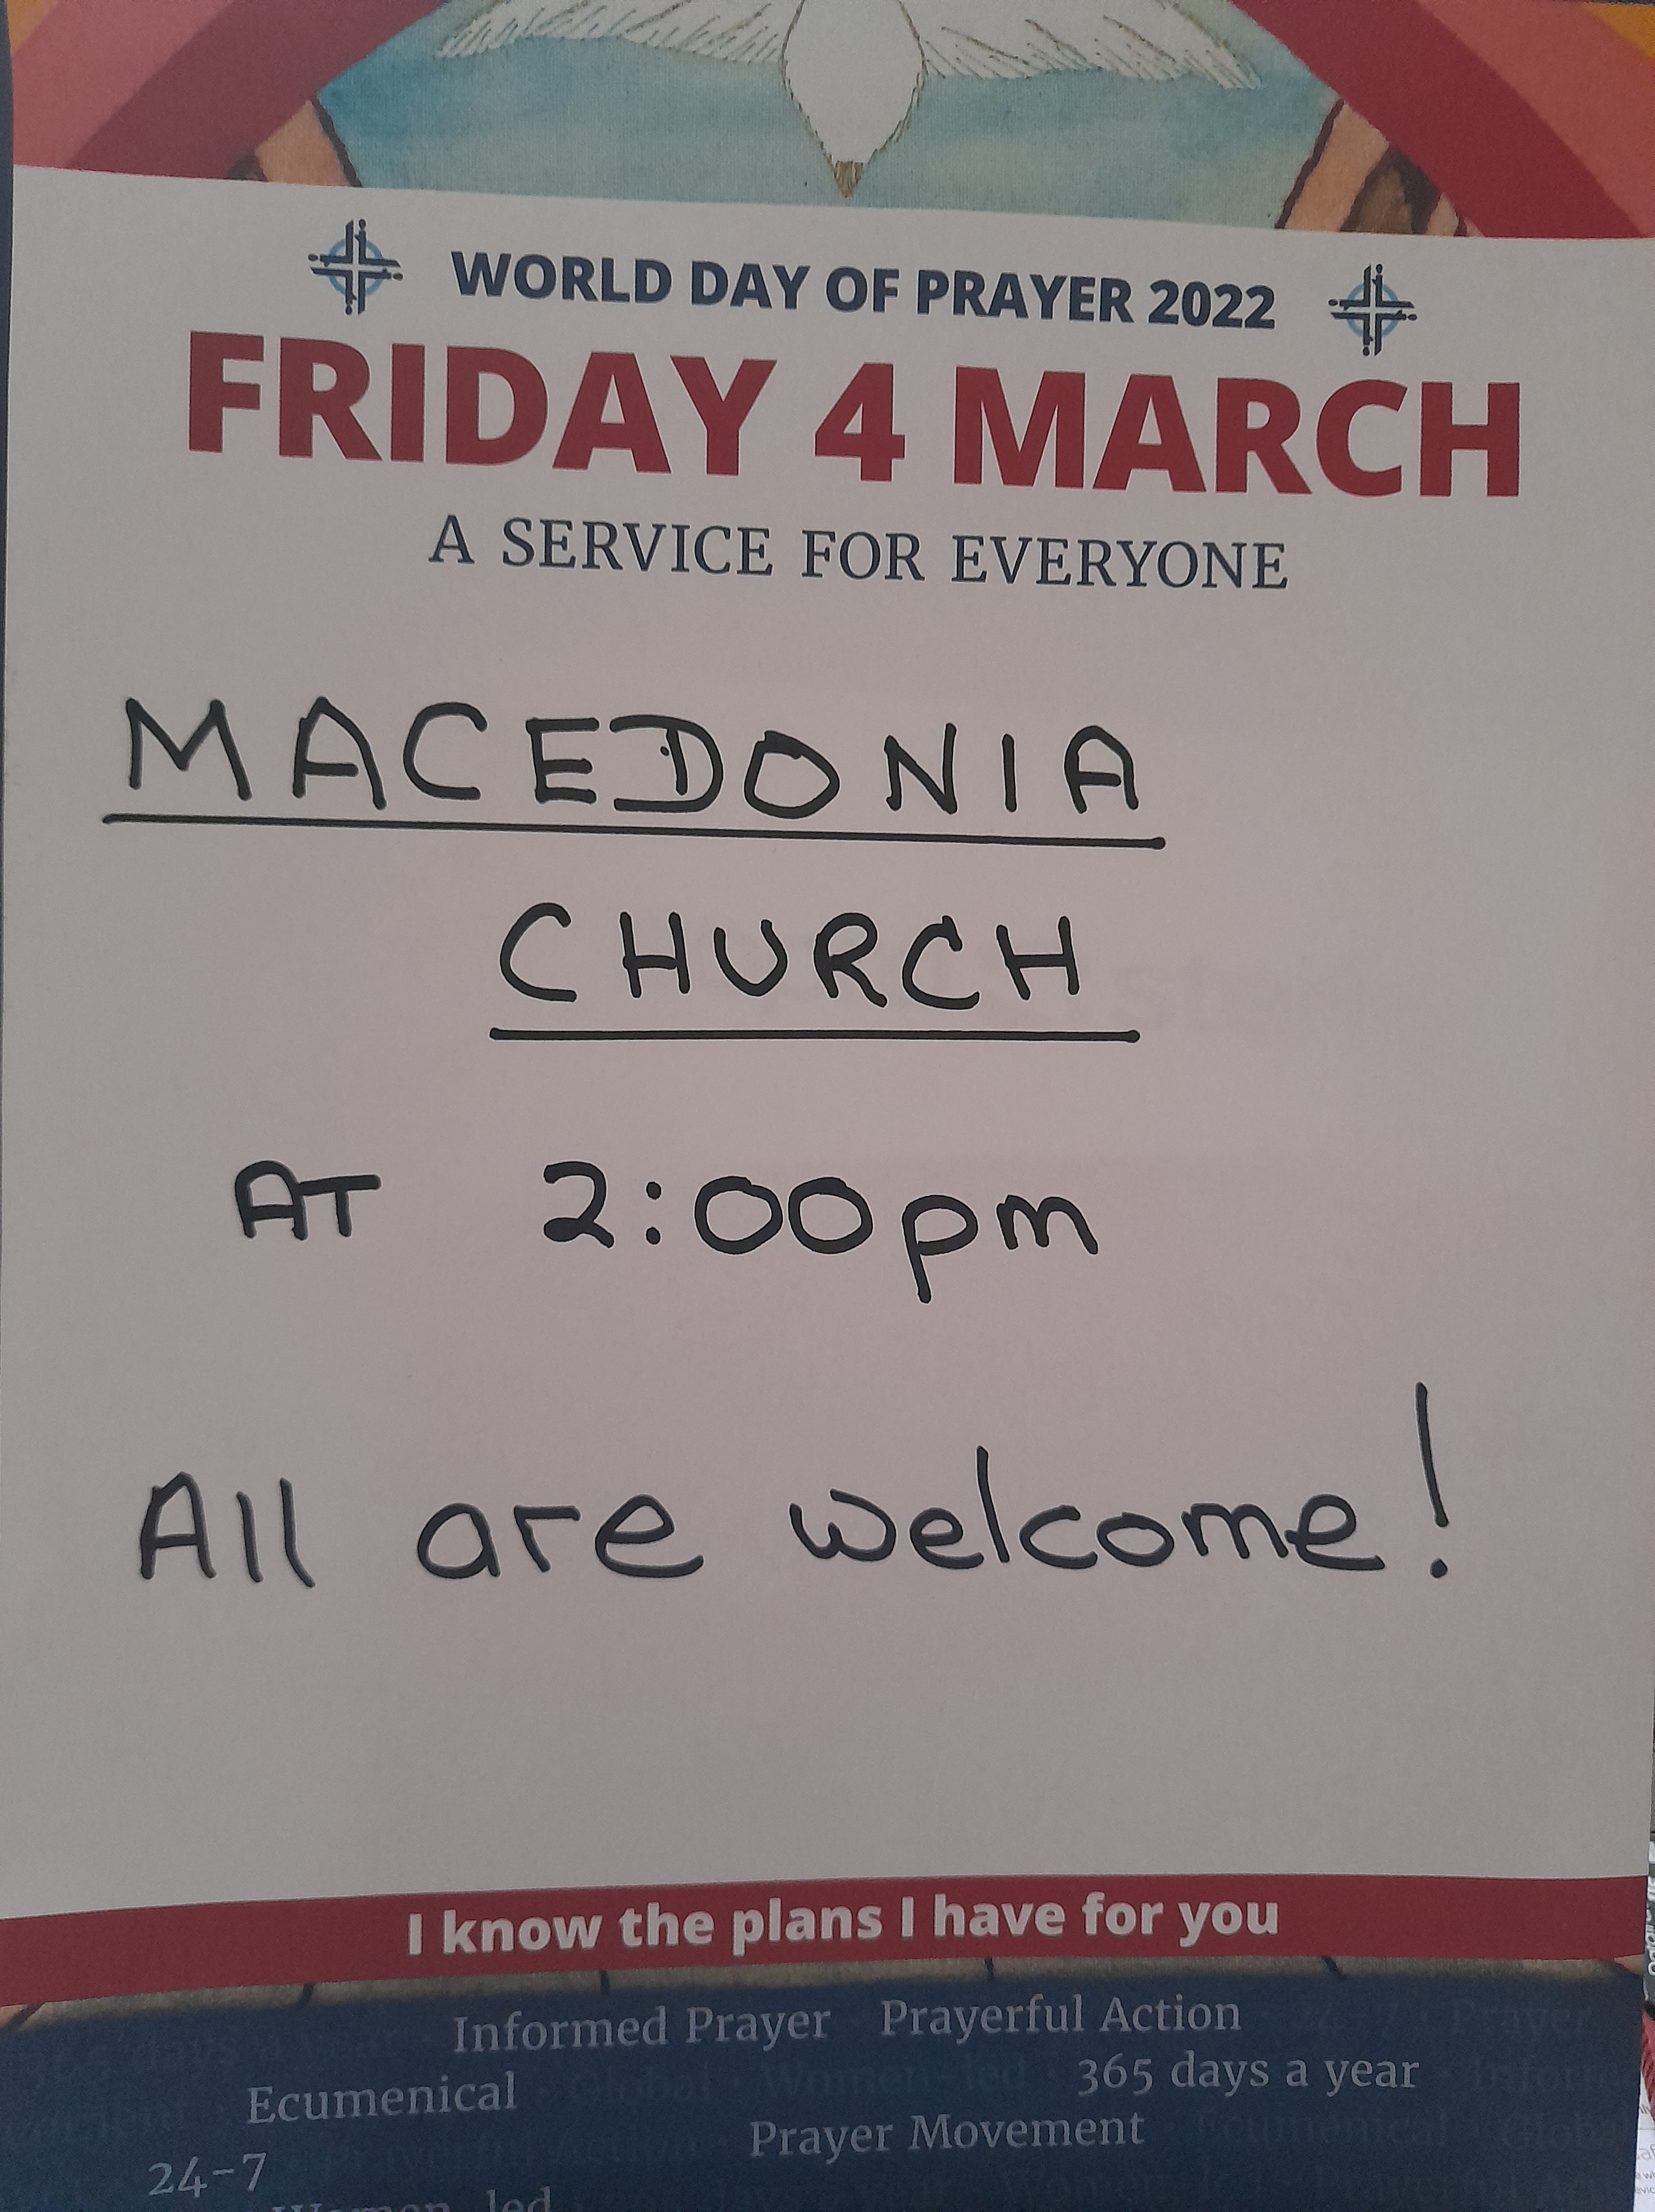 WORLD DAY OF PRAYER 2022
FRIDAY 4 MARCH
A SERVICE FOR EVERYONE
MACEDONIA
CHURCH
AT 2:00pm
All are welcome!
I know the plans I have for you
Informed Prayer Prayerful Action
365 days a year
Ecumenical
Prayer Movement
24-7
Women led